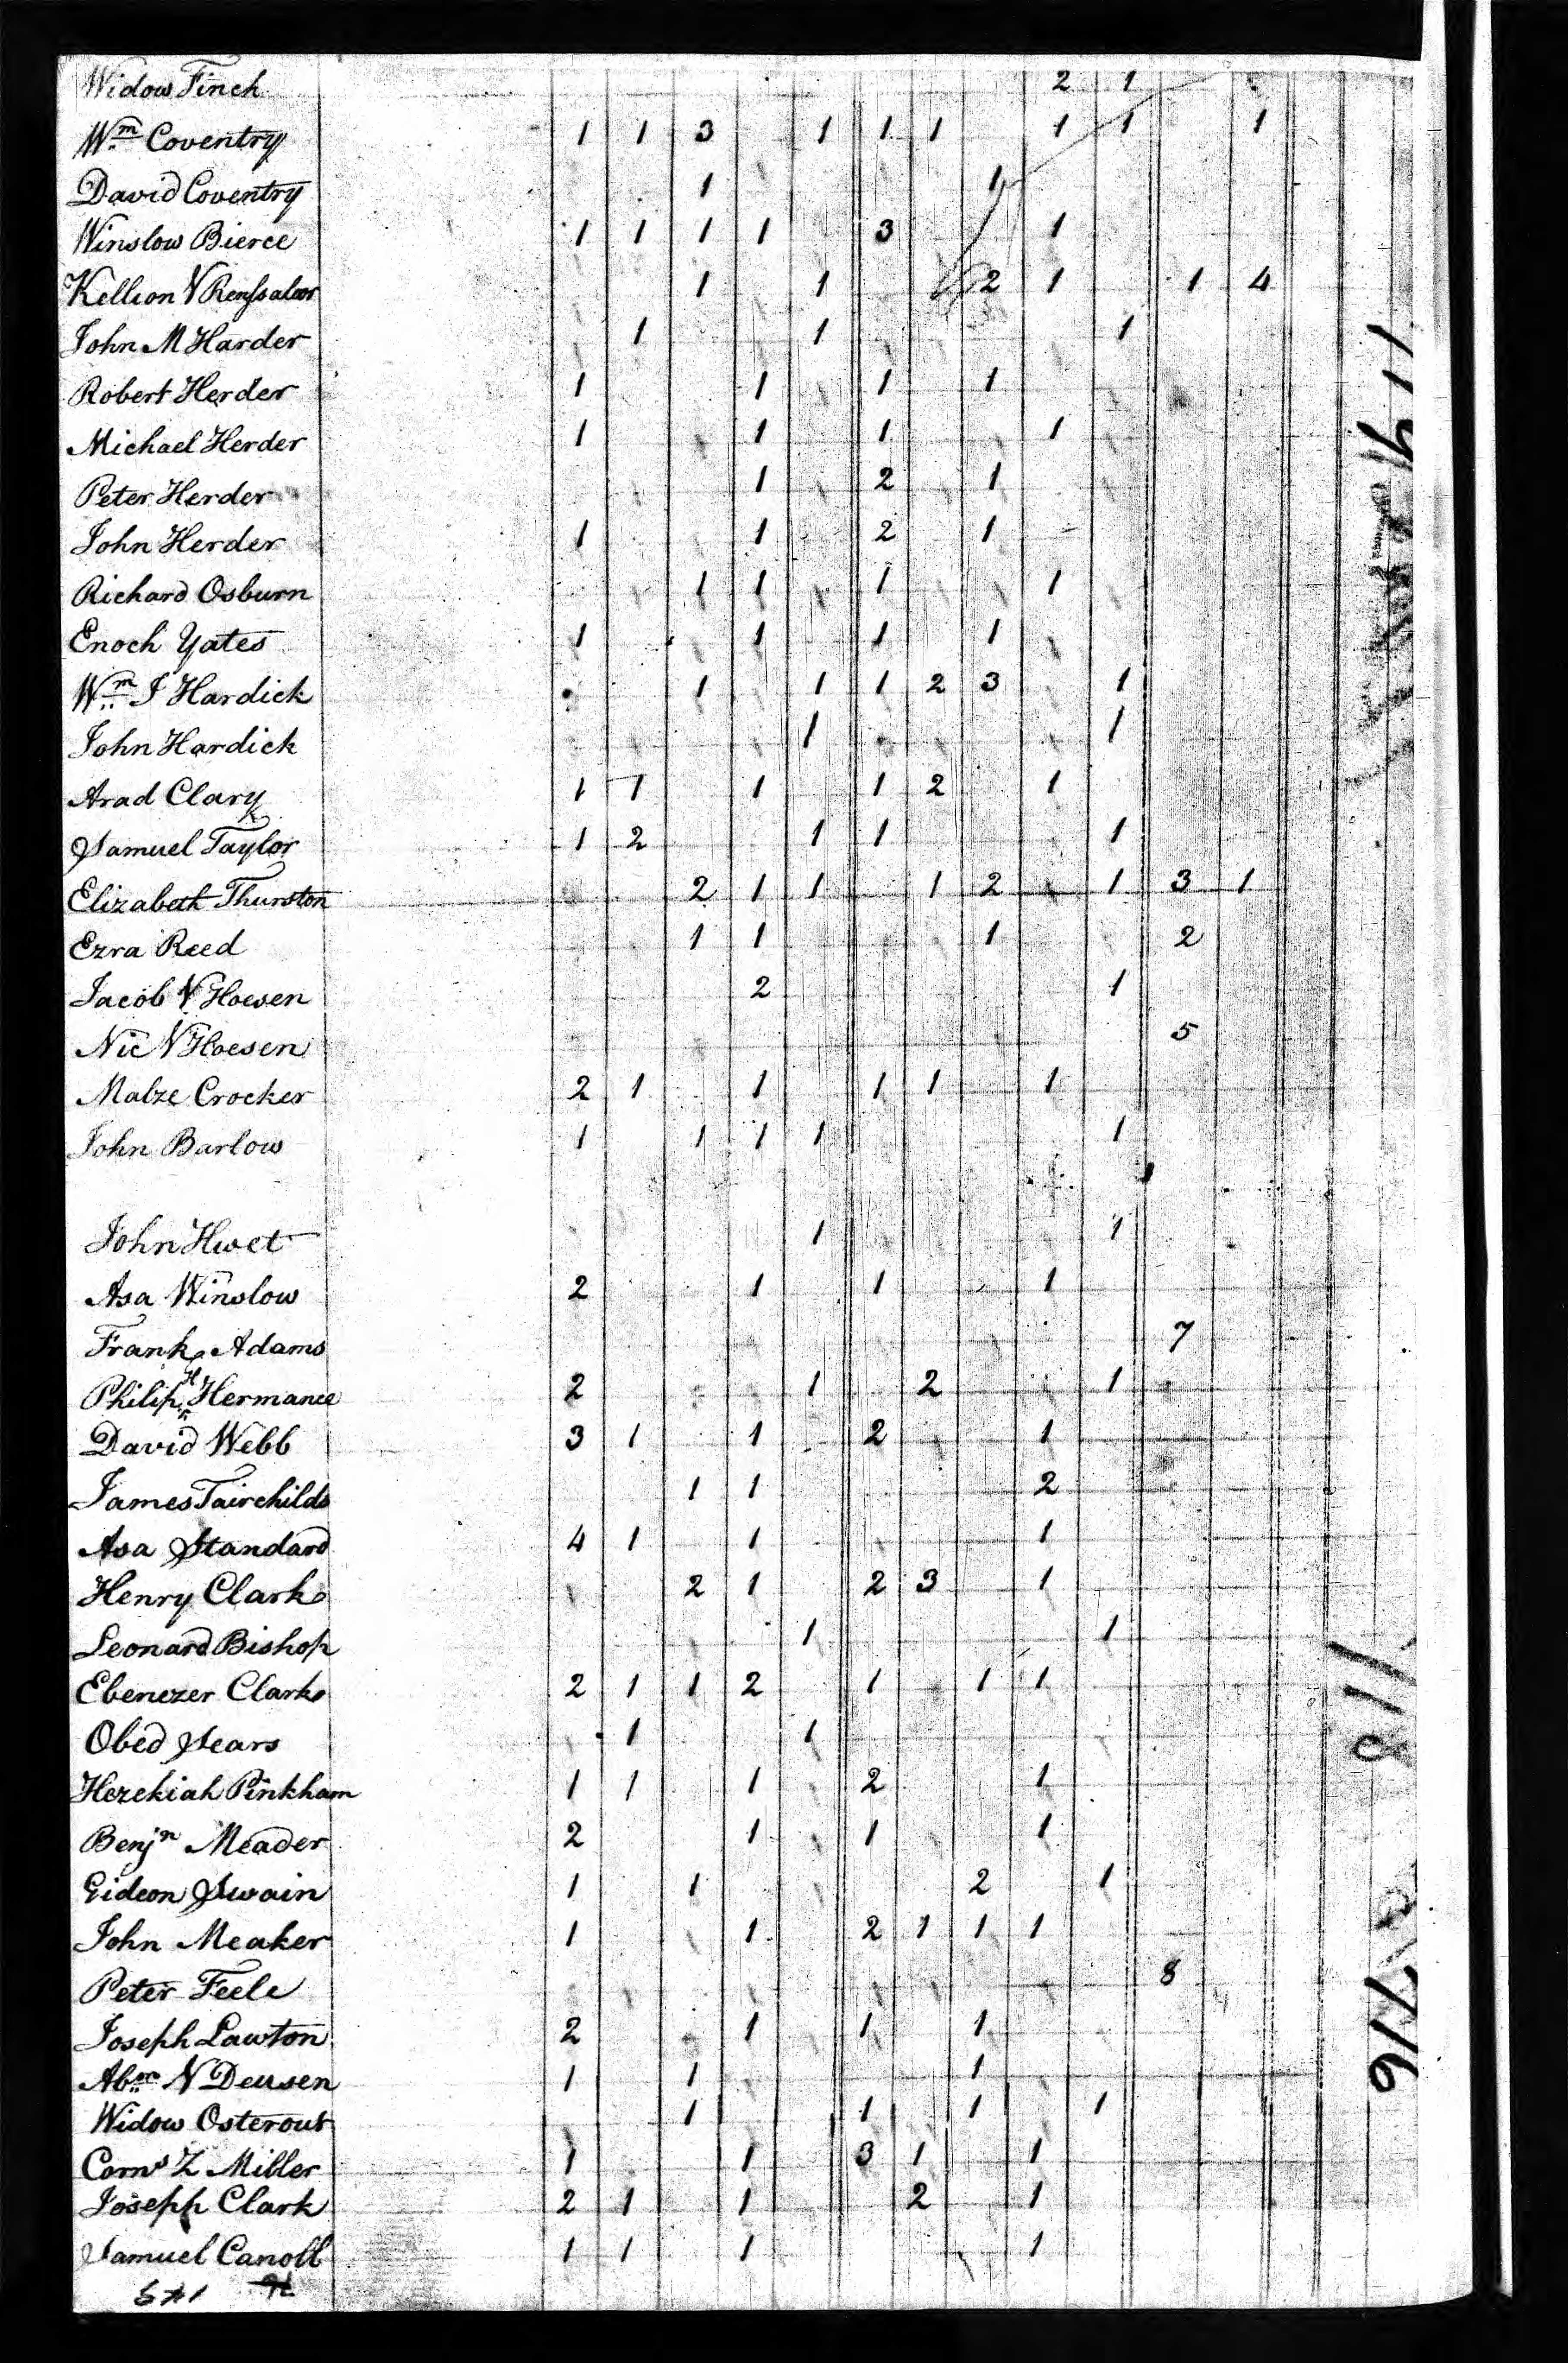 Widow Finch 2 1
Wm Coventry 1 1 3 1 1 1 1 1 1
David Coventry 1 1
Winslow Bierce 1 1 1 1 3 1
Kellion V Renssalaer 1 1 2 1 1 4
John M Harder 1 1 1
Robert Herder 1 1 1 1
Michael Herder 1 1 1 1
Peter Herder 1 2 1
John Herder 1 1 2 1
Richard Osburn 1 1 1 1
Enoch Yates 1 1 1 1
Wm I Hardick 1 1 1 2 3 1
John Hardick 1 1
Arad Clary 1 1 1 1 2 1
Samuel Taylor 1 2 1 1 1
Elizabeth Thurston 2 1 1 1 2 1 3 1
Ezra Reed 1 1 1 2
Jacob V Hoesen 2 1
Nic V Hoesen 5
Malze Crocker 2 1 1 1 1 1
John Barlow 1 1 1 1 1
John Hwet 1 1
Asa Winslow 2 1 1 1
Frank Adams 7
Philip H Hermance 2 1 2 1
David Webb 3 1 1 2 1
James Fairchilds 1 1 2
Asa Standard 4 1 1 1
Henry Clark 2 1 2 3 1
Leonard Bishop 1 1
Ebenezer Clark 2 1 1 2 1 1 1
Obed Sears 1 1
Hezekiah Pinkham 1 1 1 2 1
Benjn Meader 2 1 1 1
Gideon Swain 1 1 2 1
John Meaker 1 1 2 1 1 1
Peter Feele 8
Joseph Lawton 2 1 1 1
Abm V Deusen 1 1 1
Widow Osterout 1 1 1 1
Corns Z Miller 1 1 3 1 1
Joseph Clark 2 1 1 2 1
Samuel Canoll 1 1 1 1
118
716